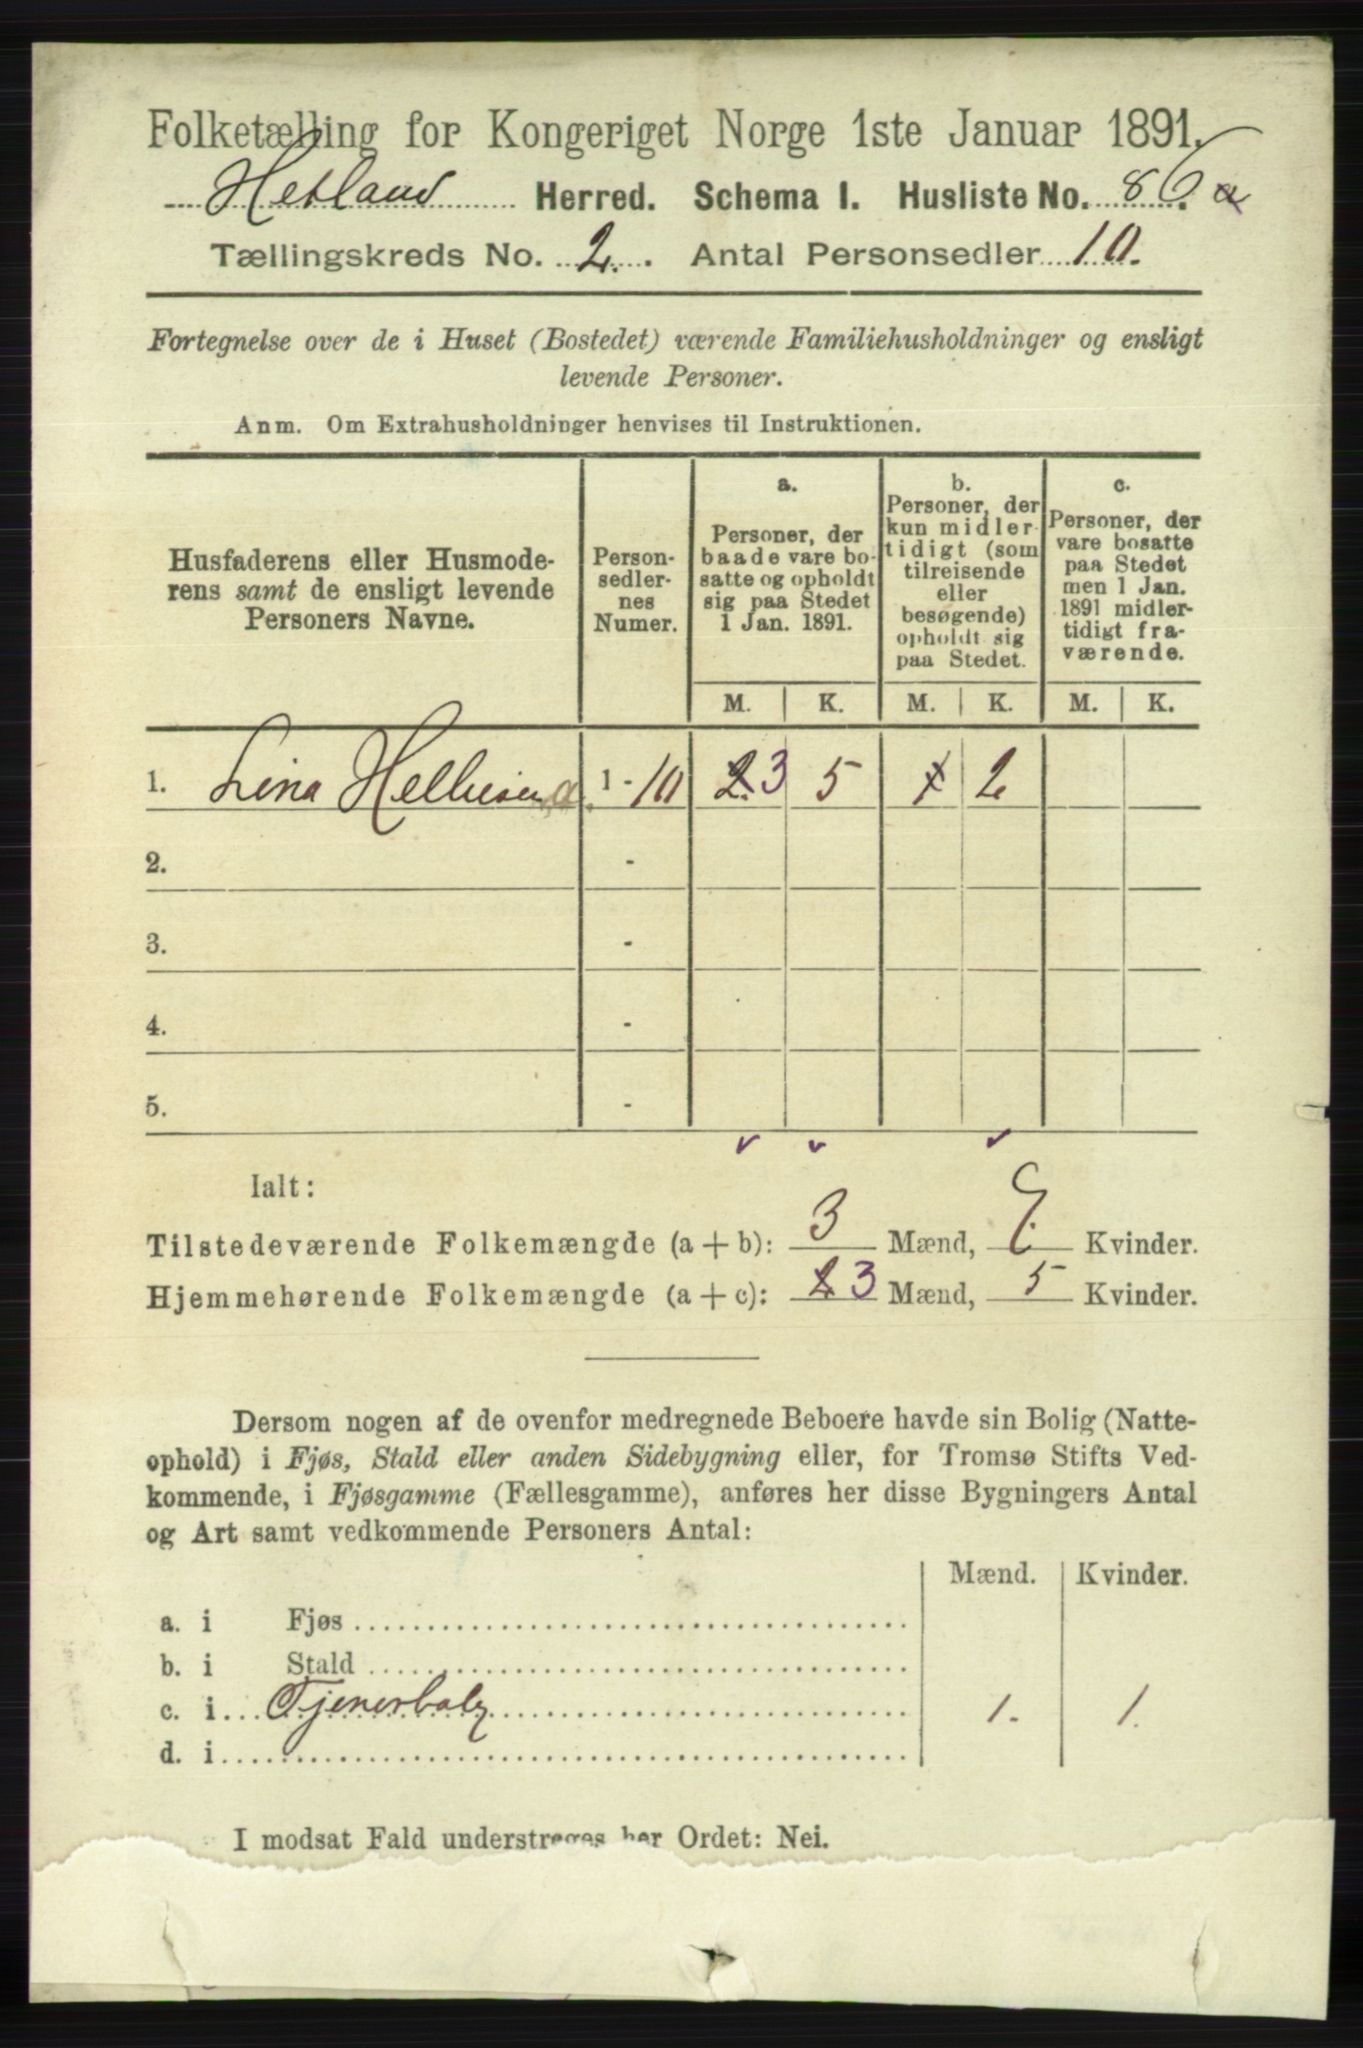 Folketælling for Kongeriget Norge 1ste Januar 1891.
Hetland Herred. Schema I. Husliste No. 86 a
Tællingskreds No. 2. Antal Personsedler 10.
Fortegnelse over de i Huset (Bostedet) værende Familiehusholdninger og ensligt
levende Personer.
Anm. Om Extrahusholdninger henvises til Instruktionen.
Husfaderens eller Husmode-
rens samt de ensligt levende
Personers Navne.
Person-
sedler-
nes
Numer.
a.
Personer, der
baade vare bo-
satte og opholdt
sig paa Stedet
1 Jan. 1891.
b.
Personer, der
kun midler-
tidigt (som
tilreisende
eller
besøgende)
opholdt sig
paa Stedet.
c.
Personer, der
vare bosatte
paa Stedet
men 1 Jan.
1891 midler-
tidigt fra-
værende.
M. K. M. K. M. K.
1. Lina 1 - 10 2 3 5 1 2
2. -
3. -
4. -
5. -
Ialt:
Tilstedeværende Folkemængde (a + b): 3 Mænd, 7. Kvinder.
Hjemmehørende Folkemængde (a + c): 2 3 Mænd, 5 Kvinder.
Dersom nogen af de ovenfor medregnede Beboere havde sin Bolig (Natte-
ophold) i Fjøs, Stald eller anden Sidebygning eller, for Tromsø Stifts Ved-
kommende, i Fjøsgamme (Fællesgamme), anføres her disse Bygningers Antal
og Art samt vedkommende Personers Antal:
Mænd. Kvinder.
a. i Fjøs
b. i Stald
c. i Tjenerbolig 1. 1.
d. i
I modsat Fald understreges her Ordet: Nei.